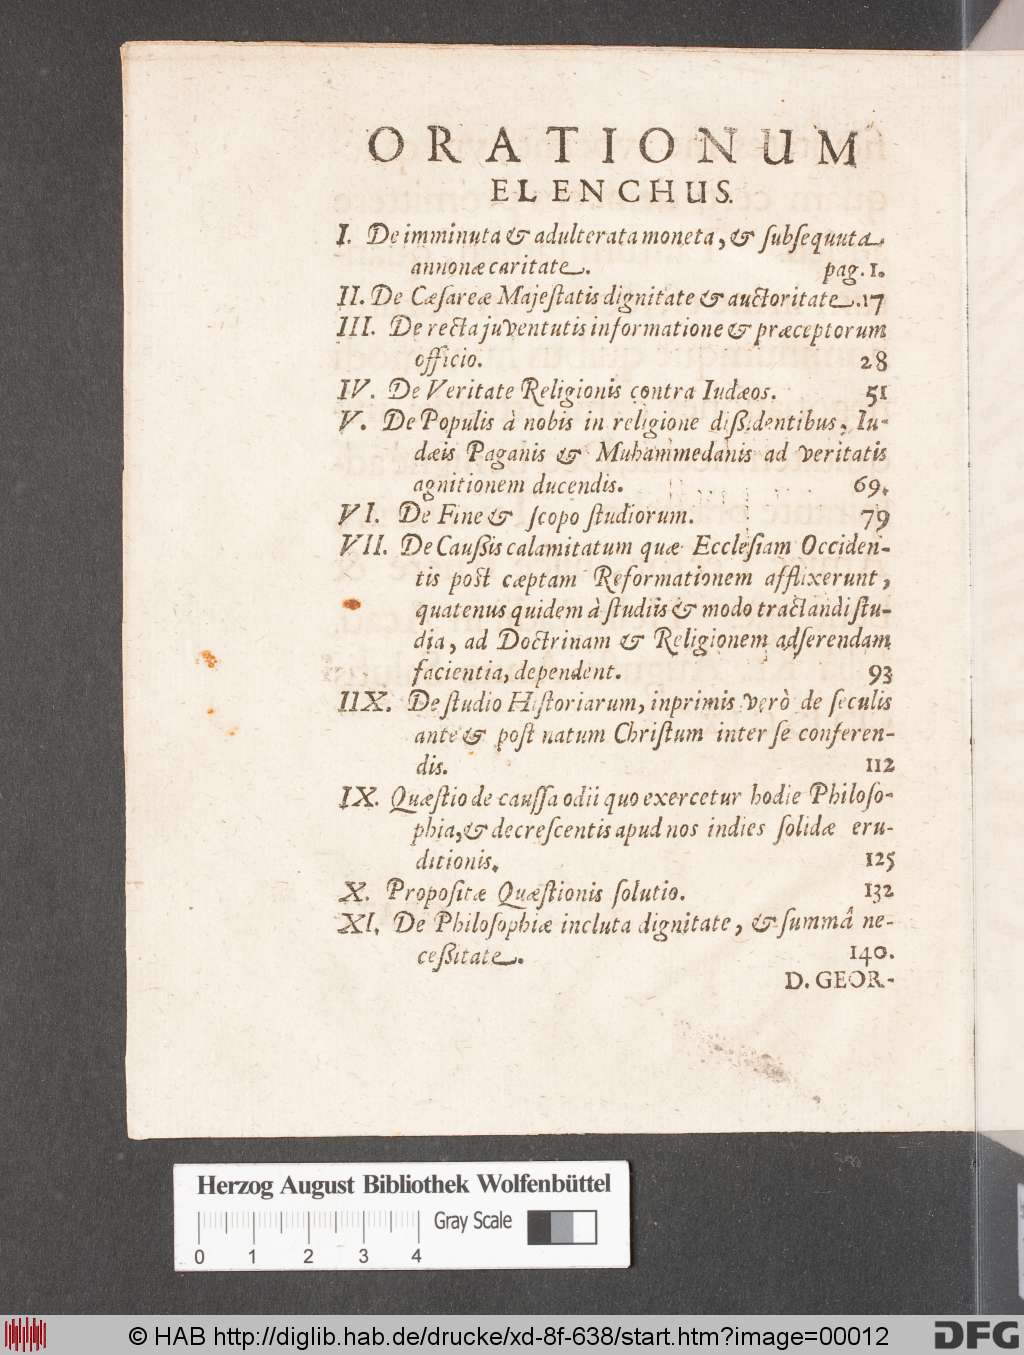 ORATIONUM
ELENCHUS.
I. De imminuta & adulterata moneta, & ſubſequuta
annonæ caritate. pag. 1.
II. De Cæſareæ Majeſtatis dignitate & auctoritate. 17
III. De recta juventutis informatione & præceptorum
officio. 28
IV. De Veritate Religionis contra Iudæos. 51
V. De Populis à nobis in religione dißidentibus, Iu-
dæis Paganis & Muhammedanis ad veritatis
agnitionem ducendis. 69.
VI. De Fine & ſcopo ſtudiorum. 79
VII. De Cauſſis calamitatum quæ Eccleſiam Occiden-
tis poſt cæptam Reformationem afflixerunt,
quatenus quidem à ſtudiis & modo tractandi ſtu-
dia, ad Doctrinam & Religionem adſerendam
facientia, dependent. 93
IIX. De ſtudio Hiſtoriarum, inprimis verò de ſeculis
ante & poſt natum Chriſtum inter ſe conferen-
dis. 112
IX. Quæſtio de cauſſa odii quo exercetur hodie Philoſo-
phia, & decreſcentis apud nos indies ſolidæ eru-
ditionis. 125
X. Propoſitæ Quæſtionis ſolutio. 132
XI. De Philoſophiæ incluta dignitate, & ſummâ ne-
ceßitate. 140.
D. GEOR-
Herzog August Bibliothek Wolfenbüttel
Gray Scale
0 1 2 3 4
© HAB http://diglib.hab.de/drucke/xd-8f-638/start.htm?image=00012
DFG